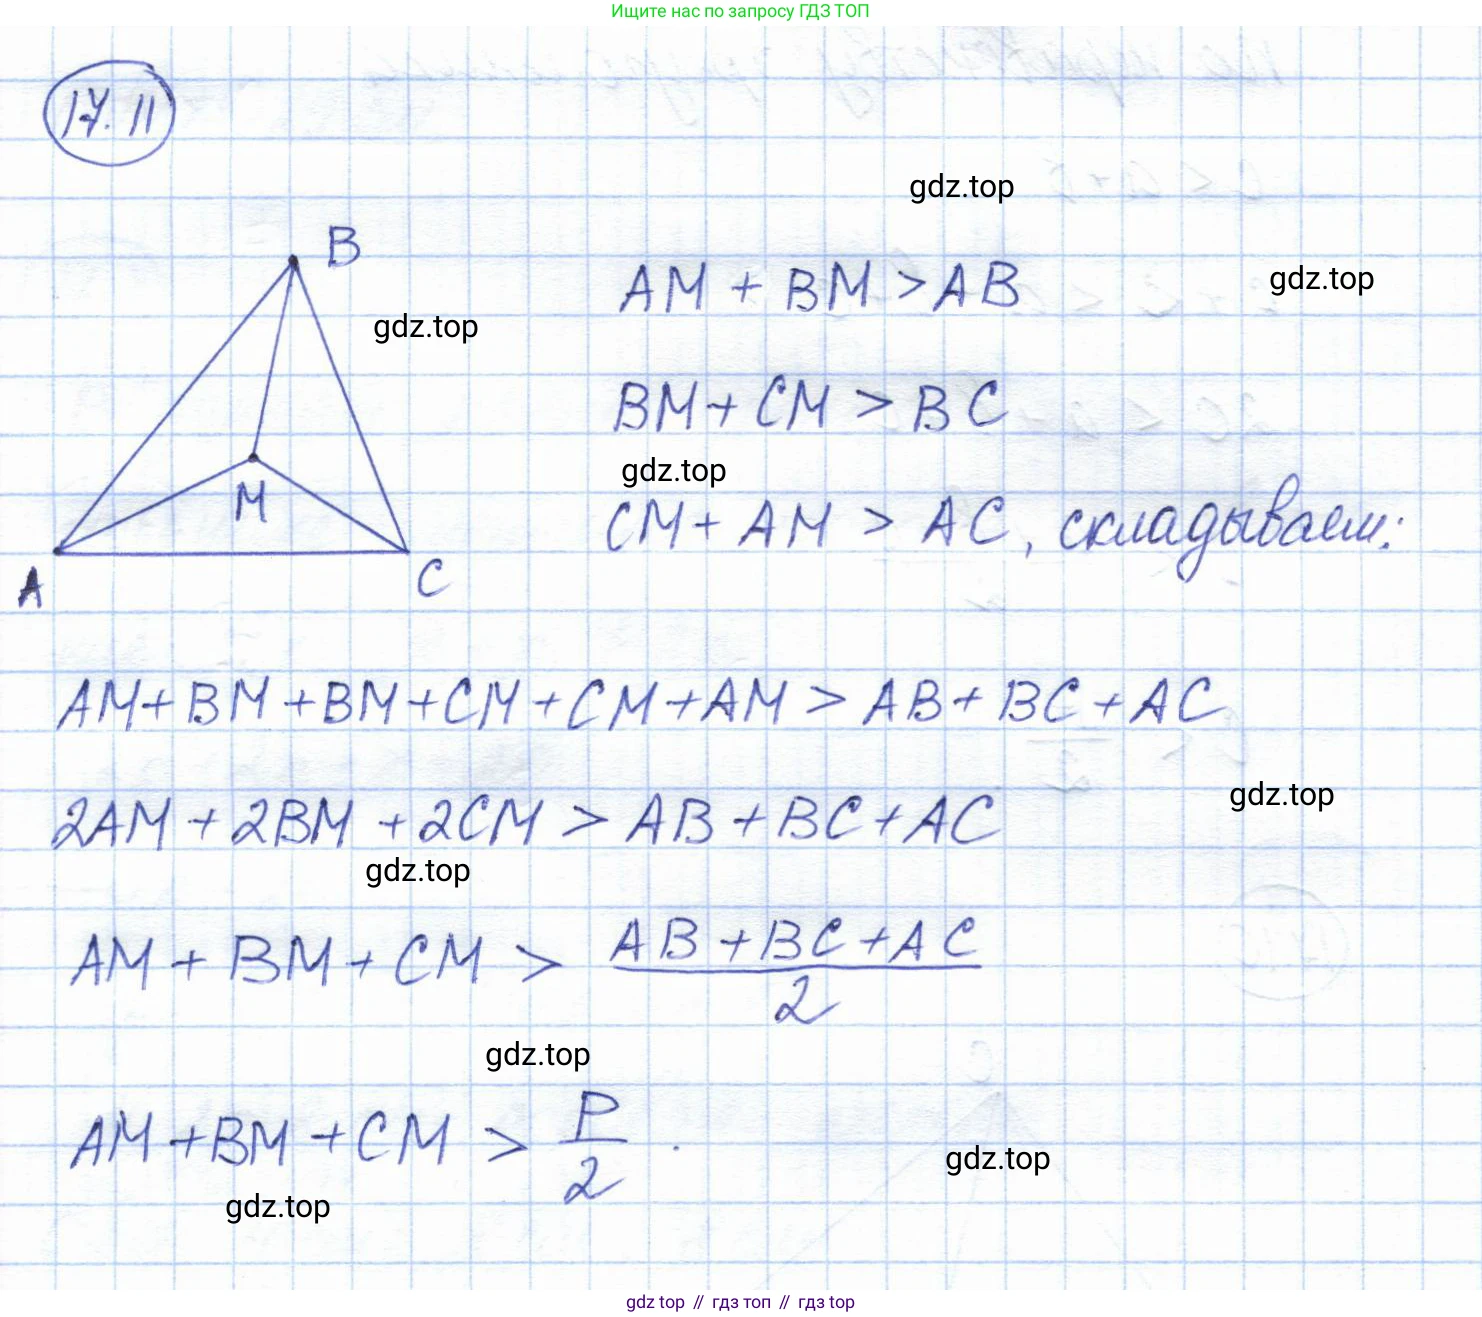 Ищите нас по запросу ГДЗ ТОП
17.11
gdz.top
B
AM + BM > AB
gdz.top
gdz.top
BM + CM > BC
gdz.top
M
CM + AM > AC, складываем:
A
C
AM + BM + BM + CM + CM + AM > AB + BC + AC
gdz.top
2AM + 2BM + 2CM > AB + BC + AC
gdz.top
AM + BM + CM > AB + BC + AC
2
gdz.top
AM + BM + CM > P
2 .
gdz.top
gdz.top
gdz top // гдз топ // гдз top